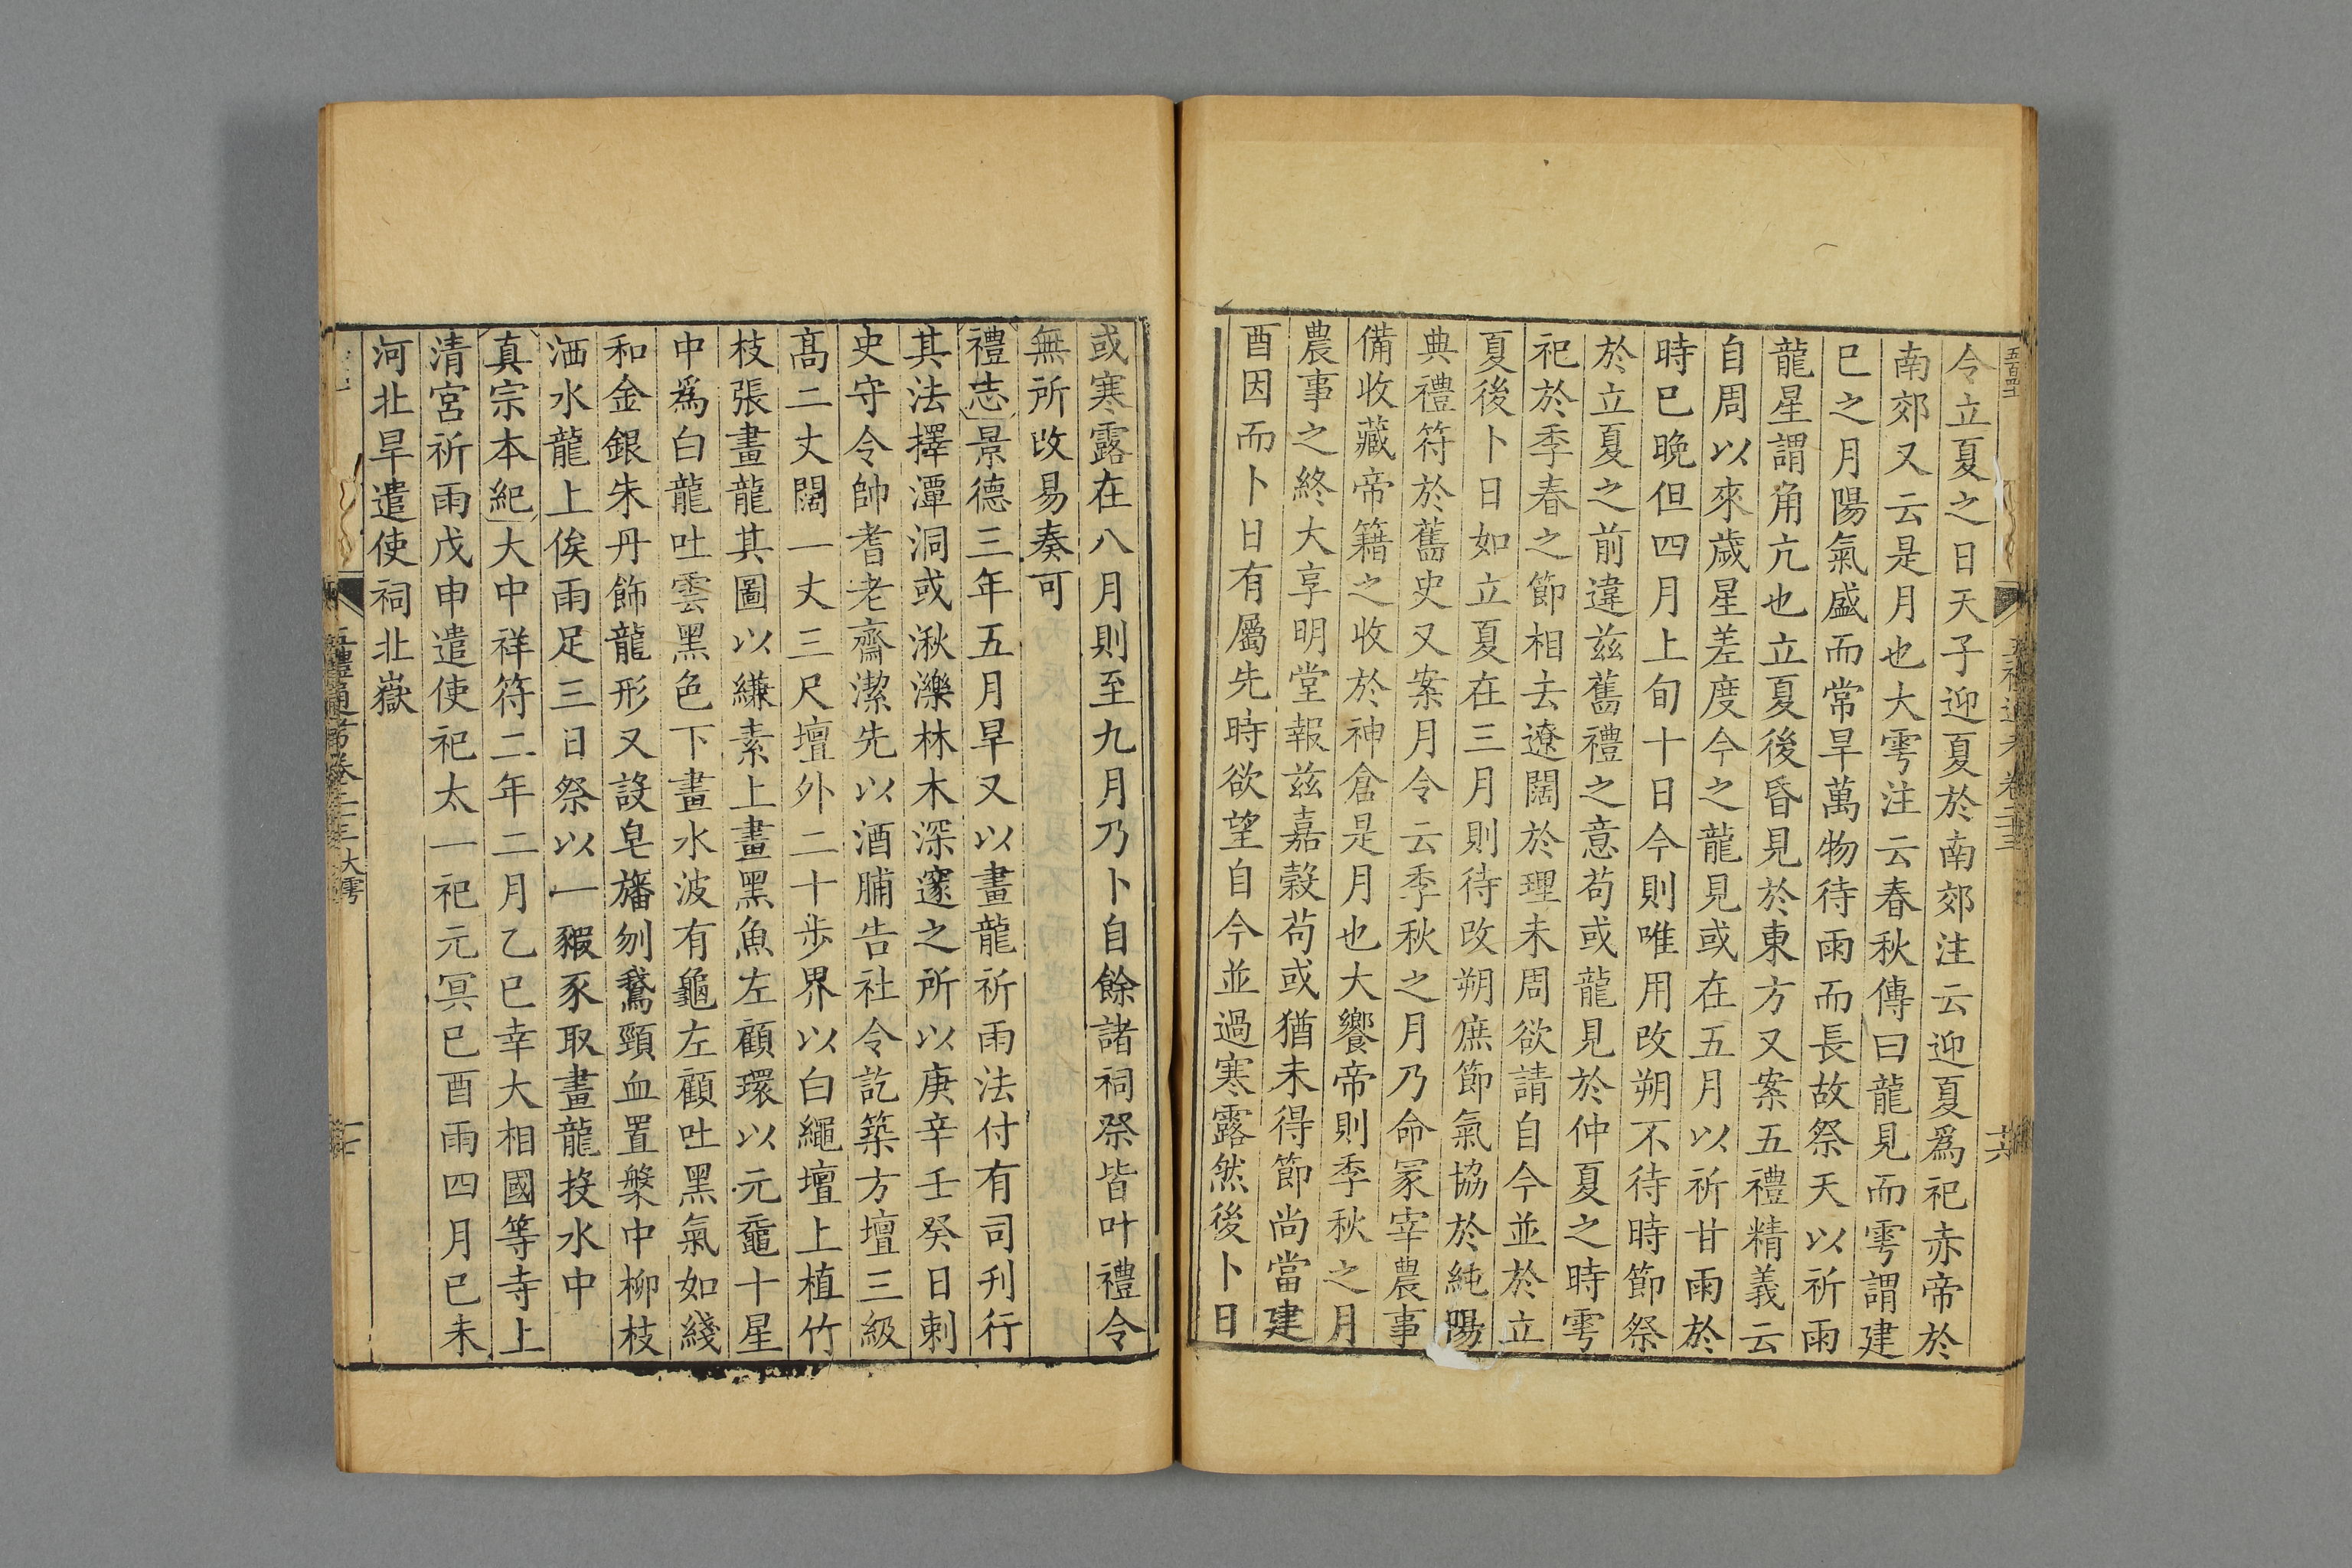 令立夏之日天子迎夏於南郊注云迎夏爲祀赤帝於
南郊又云是月也大雩注云春秋傳曰龍見而雩謂建
巳之月陽氣盛而常旱萬物待雨而長故祭天以祈雨
龍星謂角亢也立夏後昏見於東方又案五禮精義云
自周以來歲星差度今之龍見或在五月以祈甘雨於
時已晚但四月上旬十日今則唯用改朔不待時節祭
於立夏之前違茲舊禮之意苟或龍見於仲夏之時雩
祀於季春之節相去遼闊於理未周欲請自今並於立
夏後卜日如立夏在三月則待改朔庶節氣協於純陽
典禮符於舊史又案月令云季秋之月乃命冢宰農事
備收藏帝籍之收於神倉是月也大饗帝則季秋之月
農事之終大享明堂報茲嘉穀苟或猶未得節尚當建
酉因而卜日有屬先時欲望自今並過寒露然後卜日
或寒露在八月則至九月乃卜自餘諸祠祭皆叶禮令
無所改易奏可
禮志景德三年五月旱又以畫龍祈雨法付有司刋行
其法擇潭洞或湫濼林木深邃之所以庚辛壬癸日刺
史守令帥耆老齋潔先以酒脯告社令訖築方壇三級
髙二丈闊一丈三尺壇外二十步界以白繩壇上植竹
枝張畫龍其圖以縑素上畫黑魚左顧環以元黿十星
中爲白龍吐雲黑色下畫水波有龜左顧吐黑氣如綫
和金銀朱丹飾龍形又設皂旛刎鵞頸血置槃中柳枝
洒水龍上俟雨足三日祭以一豭豕取畫龍投水中
真宗本紀大中祥符二年二月乙巳幸大相國等寺上
清宮祈雨戊申遣使祀太一祀元冥已酉雨四月已未
河北旱遣使祠北嶽
五禮通考卷二十二大雩